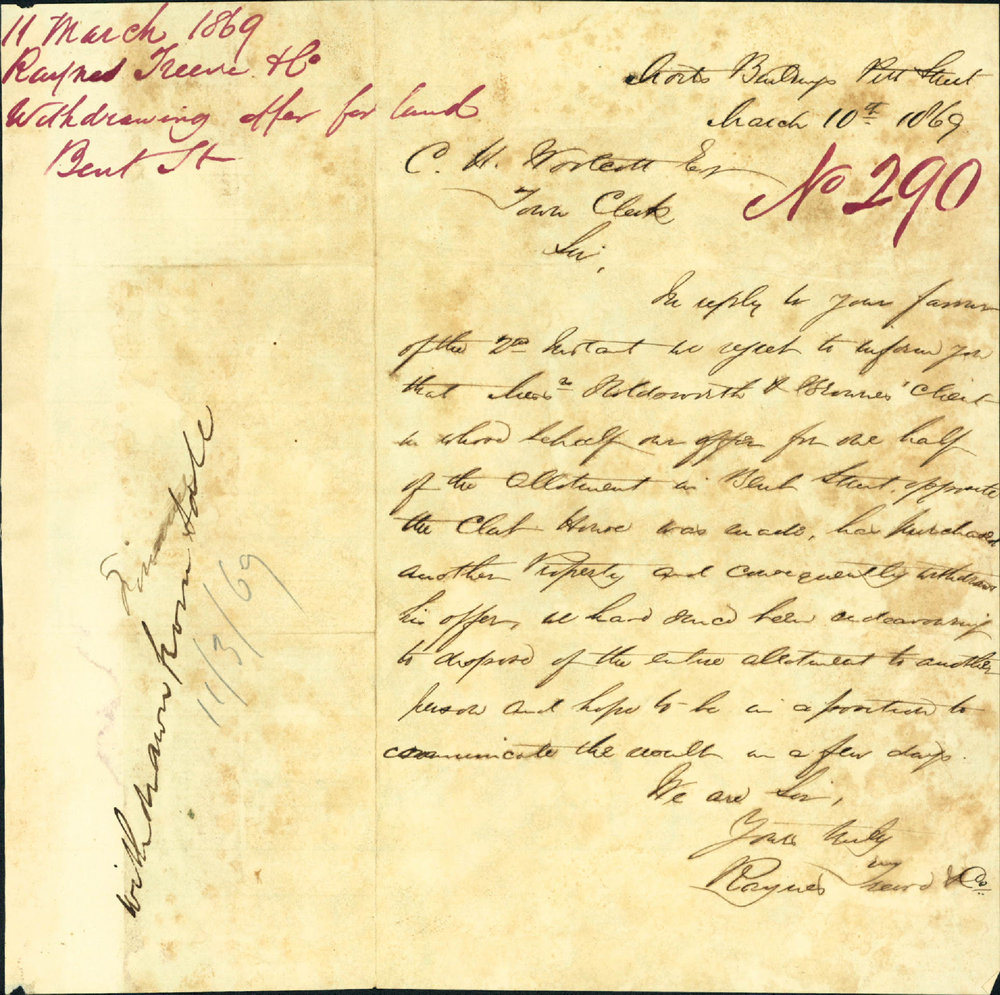 11 March 1869
Raynes Treeve & Co
Withdrawing offer for land
Bent St
Morts Buildings Pitt Street
March 10th 1869
No 290
C. H. Woolcott Esq
Town Clerk
Sir,
In reply to your favour
of the 2nd Instant we regret to inform you
that Messrs Holdsworth & Brownes' Client
in whose behalf our offer for one half
of the allotment in Bent Street, opposite
the Club House was made, has purchased
another Property and consequently withdraws
his offer, we have since been endeavouring
to dispose of the entire allotment to another
person and hope to be in a position to
communicate the result in a few days.
We are Sir,
Yours truly
Raynes Treeve & Co
withdrawn from sale
11/3/69